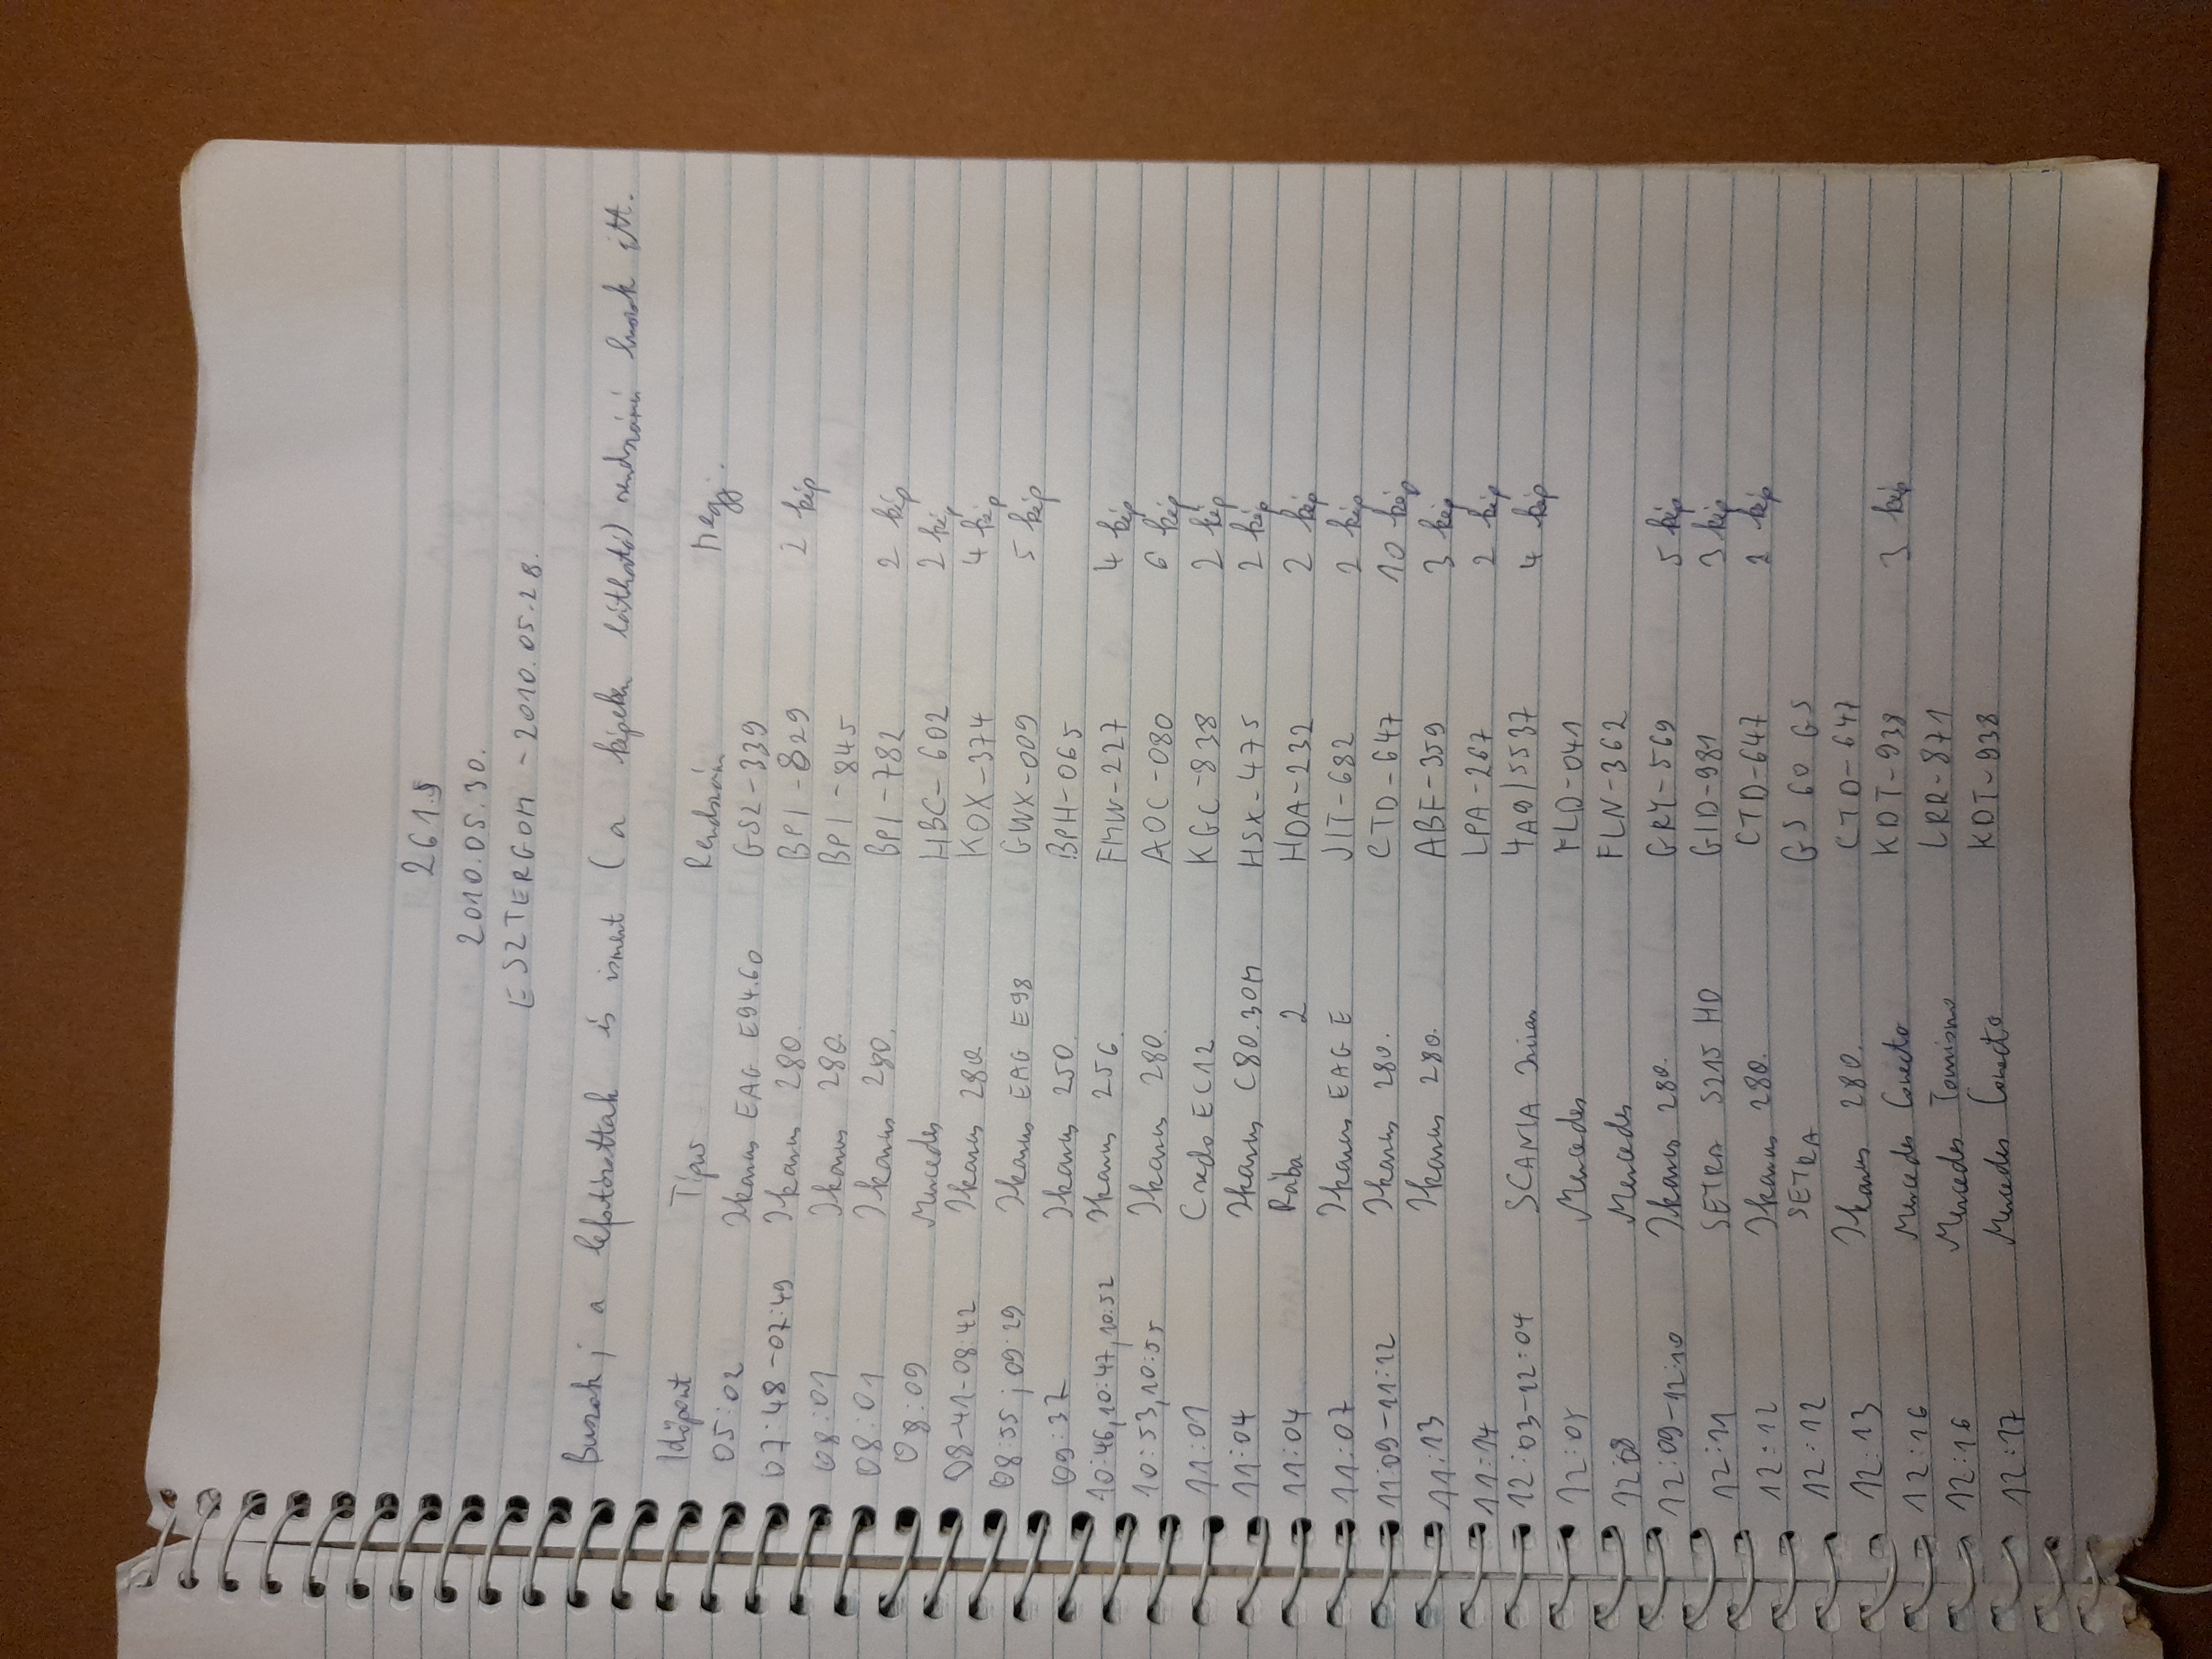 261.§
2010.05.30.
ESZTERGOM - 2010.05.28.
Buszok, a lefotózottak is ismét (a képeken látható) rendszámú buszok itt.
Időpont Típus Rendszám Megj.
05:02 Ikarus EAG E94.60 GSZ-339
07:48-07:49 Ikarus 280. BPI-829 2 kép
08:01 Ikarus 280. BPI-845
08:01 Ikarus 280. BPI-782 2 kép
08:09 Mercedes HBC-602 2 kép
08-41-08:42 Ikarus 280. KOX-374 4 kép
08:55; 09:29 Ikarus EAG E98 GWX-009 5 kép
09:37 Ikarus 250. BPH-065
10:46, 10:47, 10:52 Ikarus 256. FMW-227 4 kép
10:53, 10:55 Ikarus 280. AOC-080 6 kép
11:01 Credo EC12 KGC-838 2 kép
11:04 Ikarus C80.30M HSX-475 2 kép
11:04 Rába 2 HDA-232 2 kép
11:07 Ikarus EAG E JIT-682 2 kép
11:09-11:12 Ikarus 280. CTD-647 10 kép
11:13 Ikarus 280. ABF-359 3 kép
11:14 LPA-267 2 kép
12:03-12:04 SCANIA Irizar 4A9/5537 4 kép
12:05 Mercedes FLD-041
12:08 Mercedes FLN-362
12:09-12:10 Ikarus 280. GRY-569 5 kép
12:11 SETRA S215 HD GID-981 3 kép
12:12 Ikarus 280. CTD-647 2 kép
12:12 SETRA GS 60 GS
12:13 Ikarus 280. CTD-647
12:16 Mercedes Conecto KDT-938 3 kép
12:16 Mercedes Tourismo LRR-871
12:17 Mercedes Conecto KDT-938